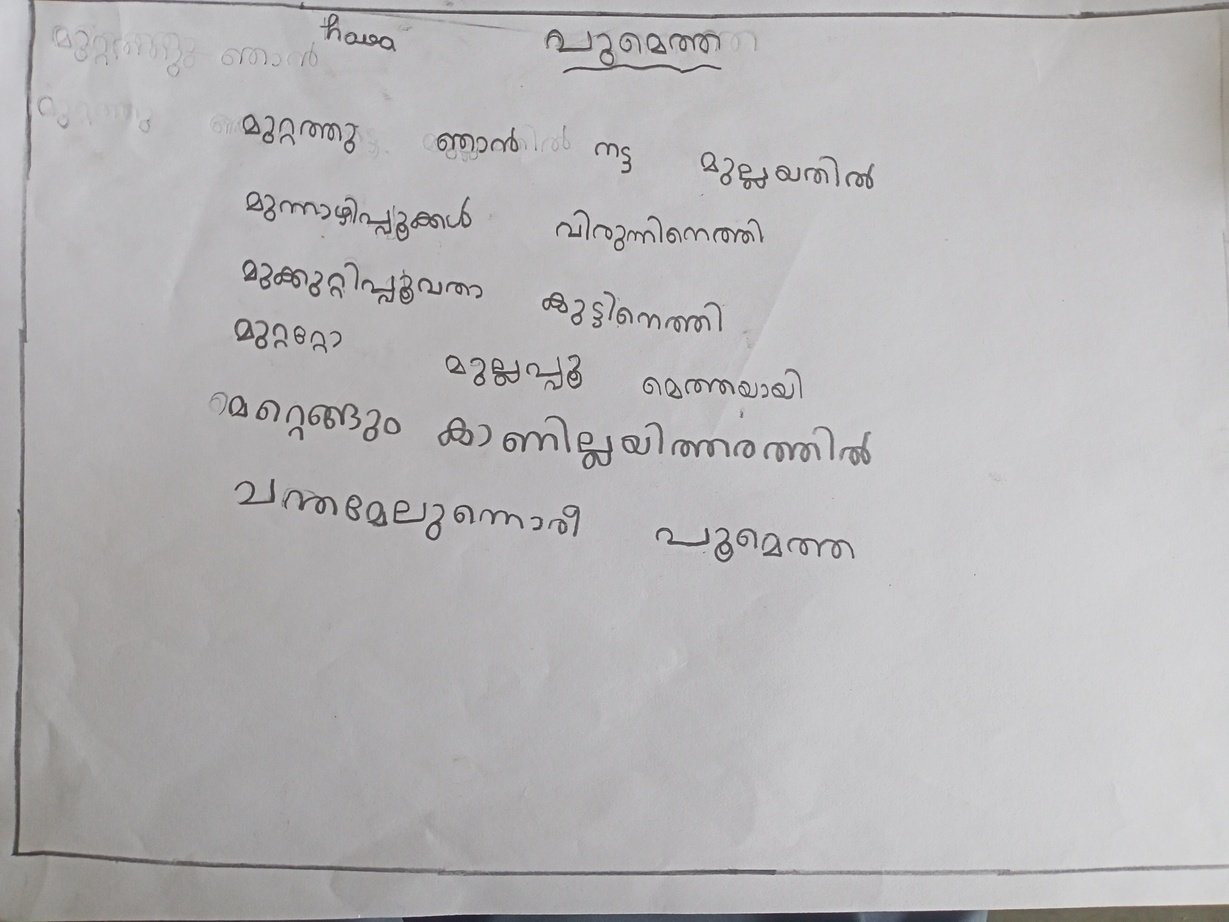 പുമെത്ത
മുറ്റത്തു ഞാൻ നട്ട മുല്ലയതിൽ
മുന്നാഴിപ്പൂക്കൾ വിരുന്നിനെത്തി
മുക്കുറ്റിപ്പൂവതാ കുട്ടിനെത്തി
മുറ്ററ്റോ മുല്ലപ്പൂ മെത്തയായി
മെറ്റെങ്ങും കാണില്ലയിത്തരത്തിൽ
ചന്തമേലുന്നൊരീ പൂമെത്ത